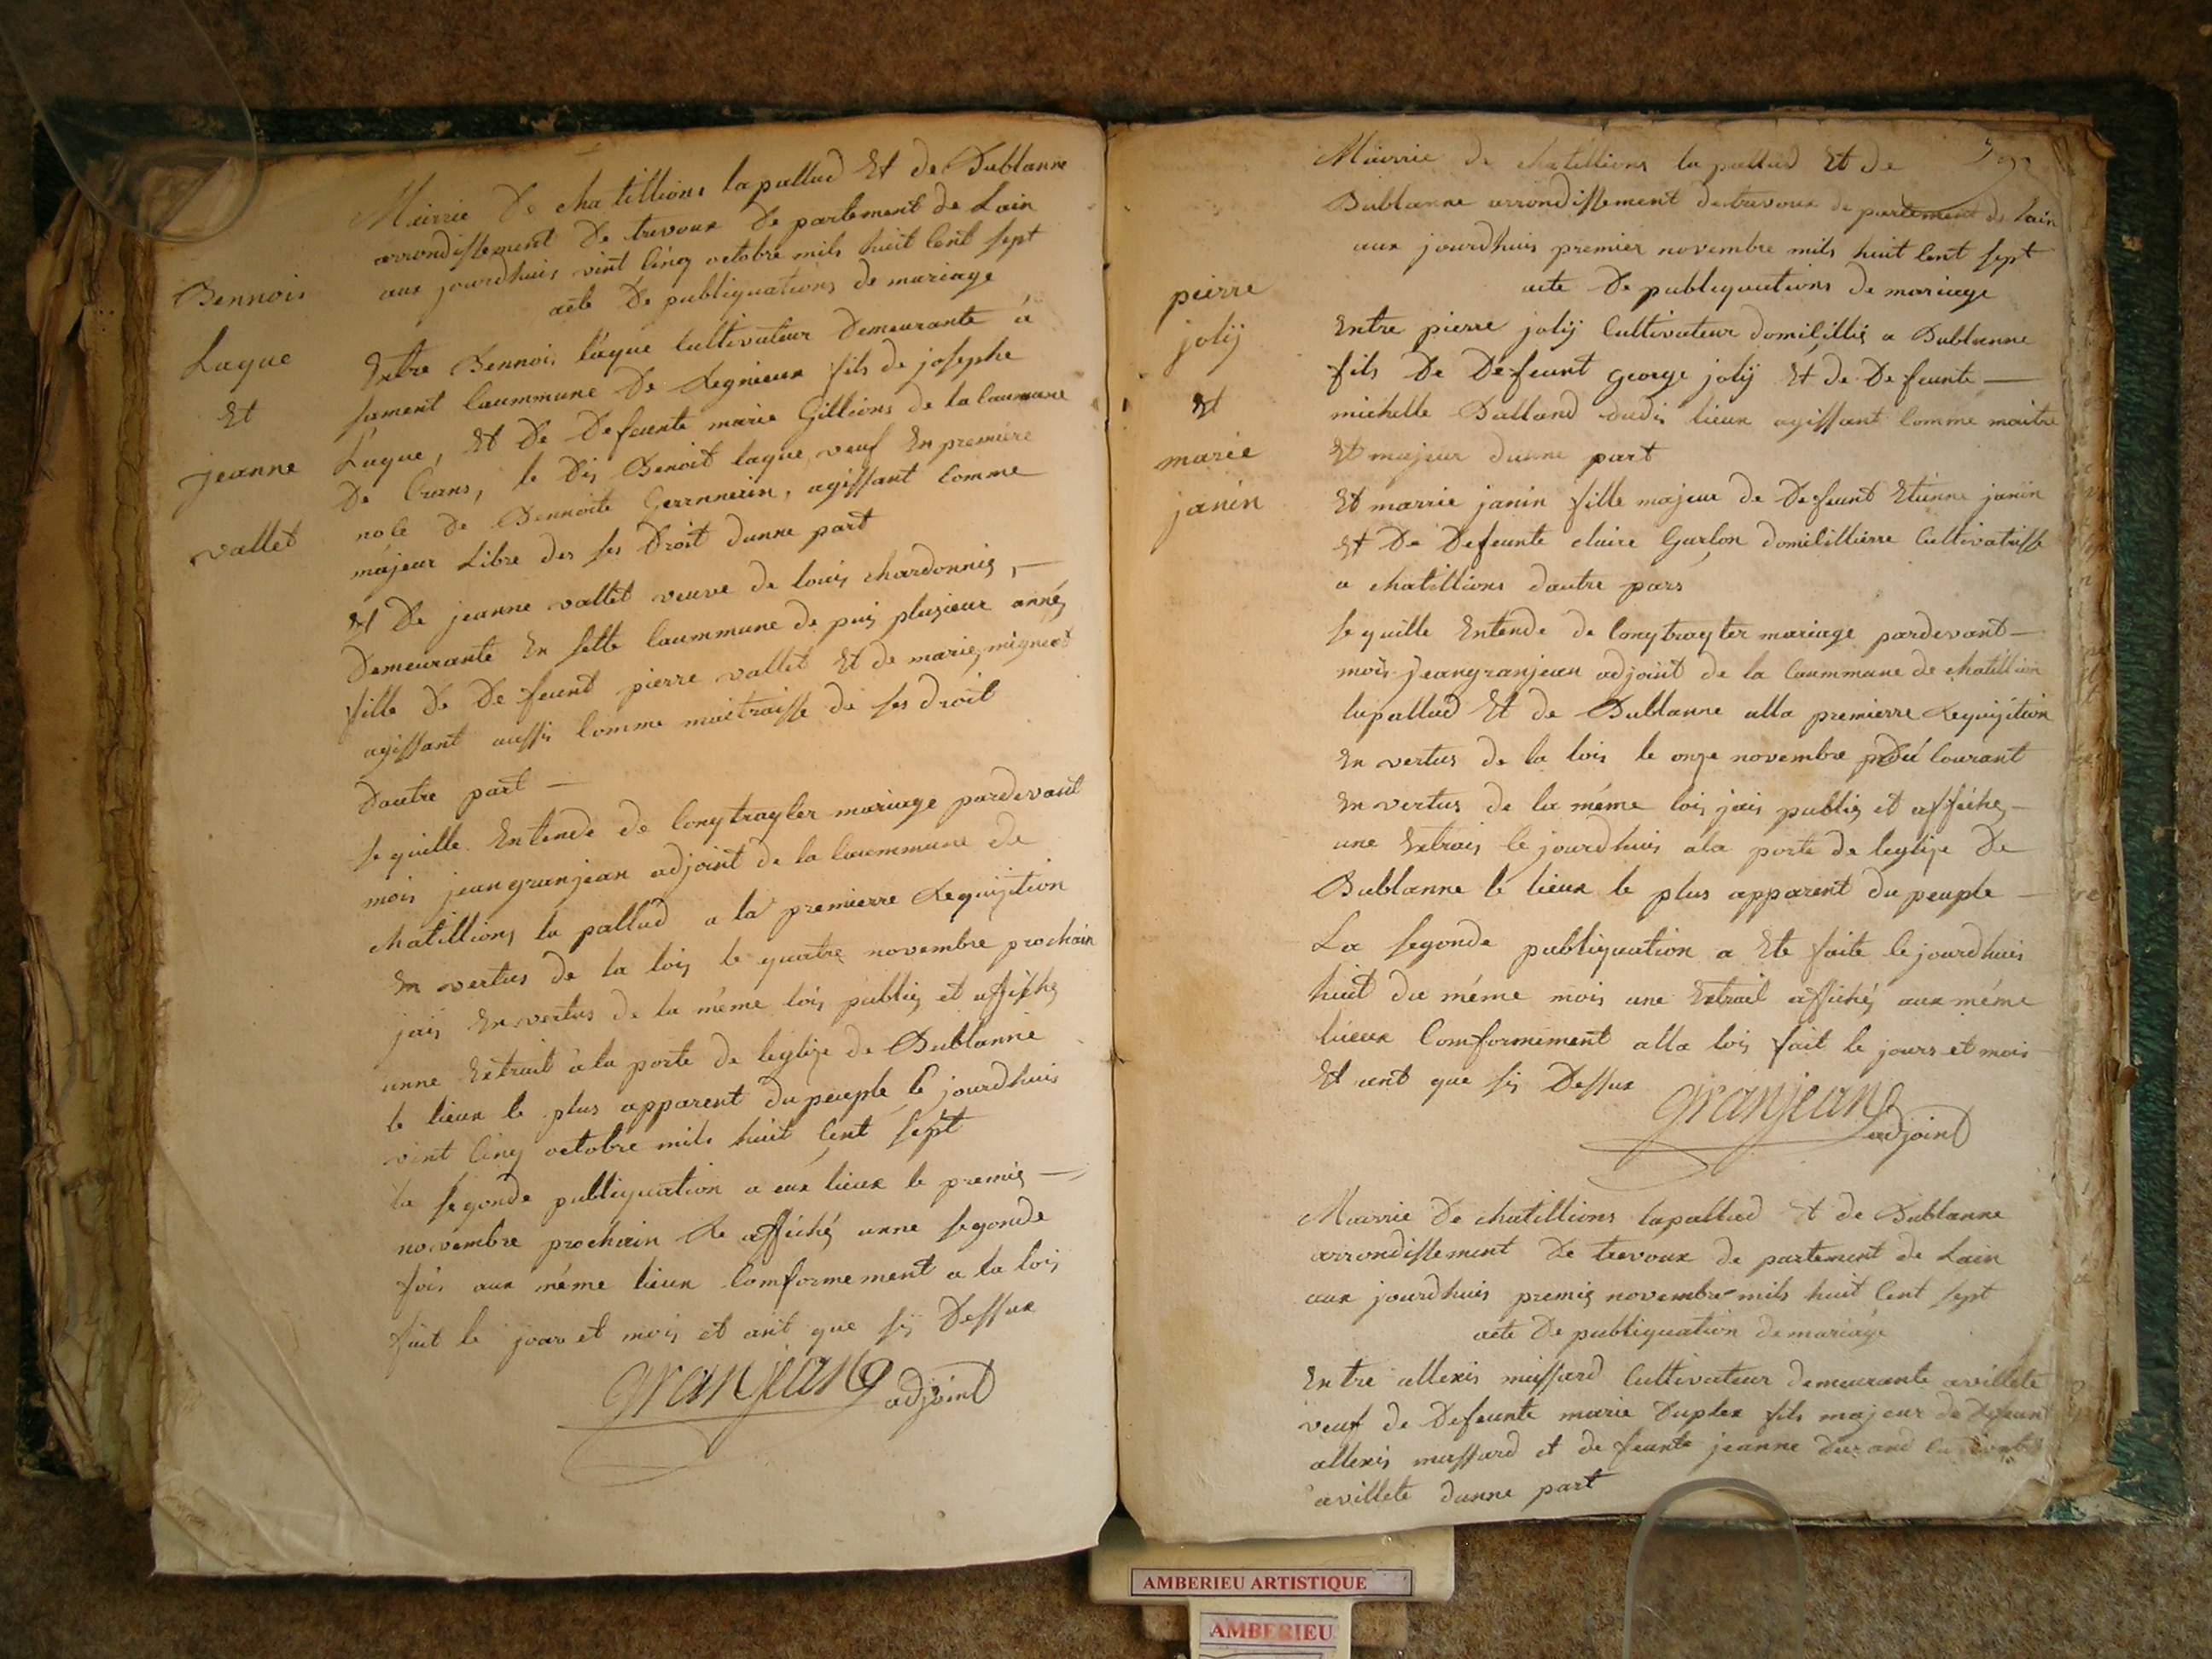 Mairrie de chatillions lapallud Et de Dublanne
arrondissement De trevoux De partement de Lain
aux jourdhuis vint Cinq octobre mils huit Cent sept
acte De publiquations de mariage
Bennois
Laque
Et
jeanne
vallet
Entre Bennois laque Cultivateur Demeurante a
sament Caummune De Regnieux fils de josephe
Laque, Et De Defeunte marie Gillions de la Caummune
De Crans, le Dis Benoit laque veuf En premiere
noce De Bennoite, agissant Comme
majeur Libre des ses Droit dunne part
Et De jeanne vallet veuve de louis chardonnis, —
Demeurante En sette Caummune de puis plusieur annés
fille De De feunt pierre vallet Et de marie migneot
agissant aussis Comme maitraisse de ses droit
Dautre part —
se quille Entende de Conytrayter mariage pardevant
mois jeangranjean adjoint de la Caummune de
chatillions la pallud a la premierre Requijition
En vertus de la lois le quatre novembre prochain
jais En vertus de la même lois publis et affiches
unne Extrait à la porte de leglize de Dublanne
le lieux le plus apparent du peuple le jourdhuis
vint Cinq octobre mils huit Cent sept
la segonde publiquation a eux lieux le premis —
novembre prochain Re affiché unne segonde
fois aux même lieux Comformement a la lois
fait le jour et mois et ant que sis Dessux
granjean adjoint
Mairrie de chatillions la pallud Et de
Dublanne arrondissement de trevoux de partement de lain
aux jourdhuis premier novembre mils huit Cent sept
acte De publiquations De mariage
pierre
jolij
Et
marie
janin
Entre pierre jolij Cultivateur domicilliés a Dublanne
fils De Defeunt george jolij Et de De feunte —
michelle Balland dudis lieux agissant Comme maitre
Et majeur dunne part
Et marrie janin fille majeur de Defeunt Etienne janin
Et De Defeunte claire Garlon domicillierre Cultivatrisse
a chatillions dautre pars
se quille Entende de Conytrayter mariage pardevant —
mois jeangranjean adjoint de la Caummune de chatillion
lapallud Et de Dublanne alla premierre Requijition
En vertus de la lois le onze novembre du Courant
En vertus de la même lois jais publis et affiches —
une Extrais le jourdhuis ala porte de leglize De
Dublanne le lieux le plus apparent du peuple —
La segonde publiquation a Ete faite le jourdhuis
huit du même mois une Extrait affichés aux même
lieux Comformement alla lois fait le jours et mois
Et ant que sis Dessux
granjean
adjoint
Mairrie De chatillions lapallud Et de Dublanne
arrondissement De trevoux de partement de Lain
aux jourdhuis premis novembre mils huit Cent sept
acte De publiquation de mariage
Entre allexis massard Cultivateur demeurante avillete
veuf de Defeunte marie Duplex fils majeur de Defeunt
allexis massard et de feunte jeanne Durand
avillete dunne part
AMBERIEU ARTISTIQUE
AMBERIEU